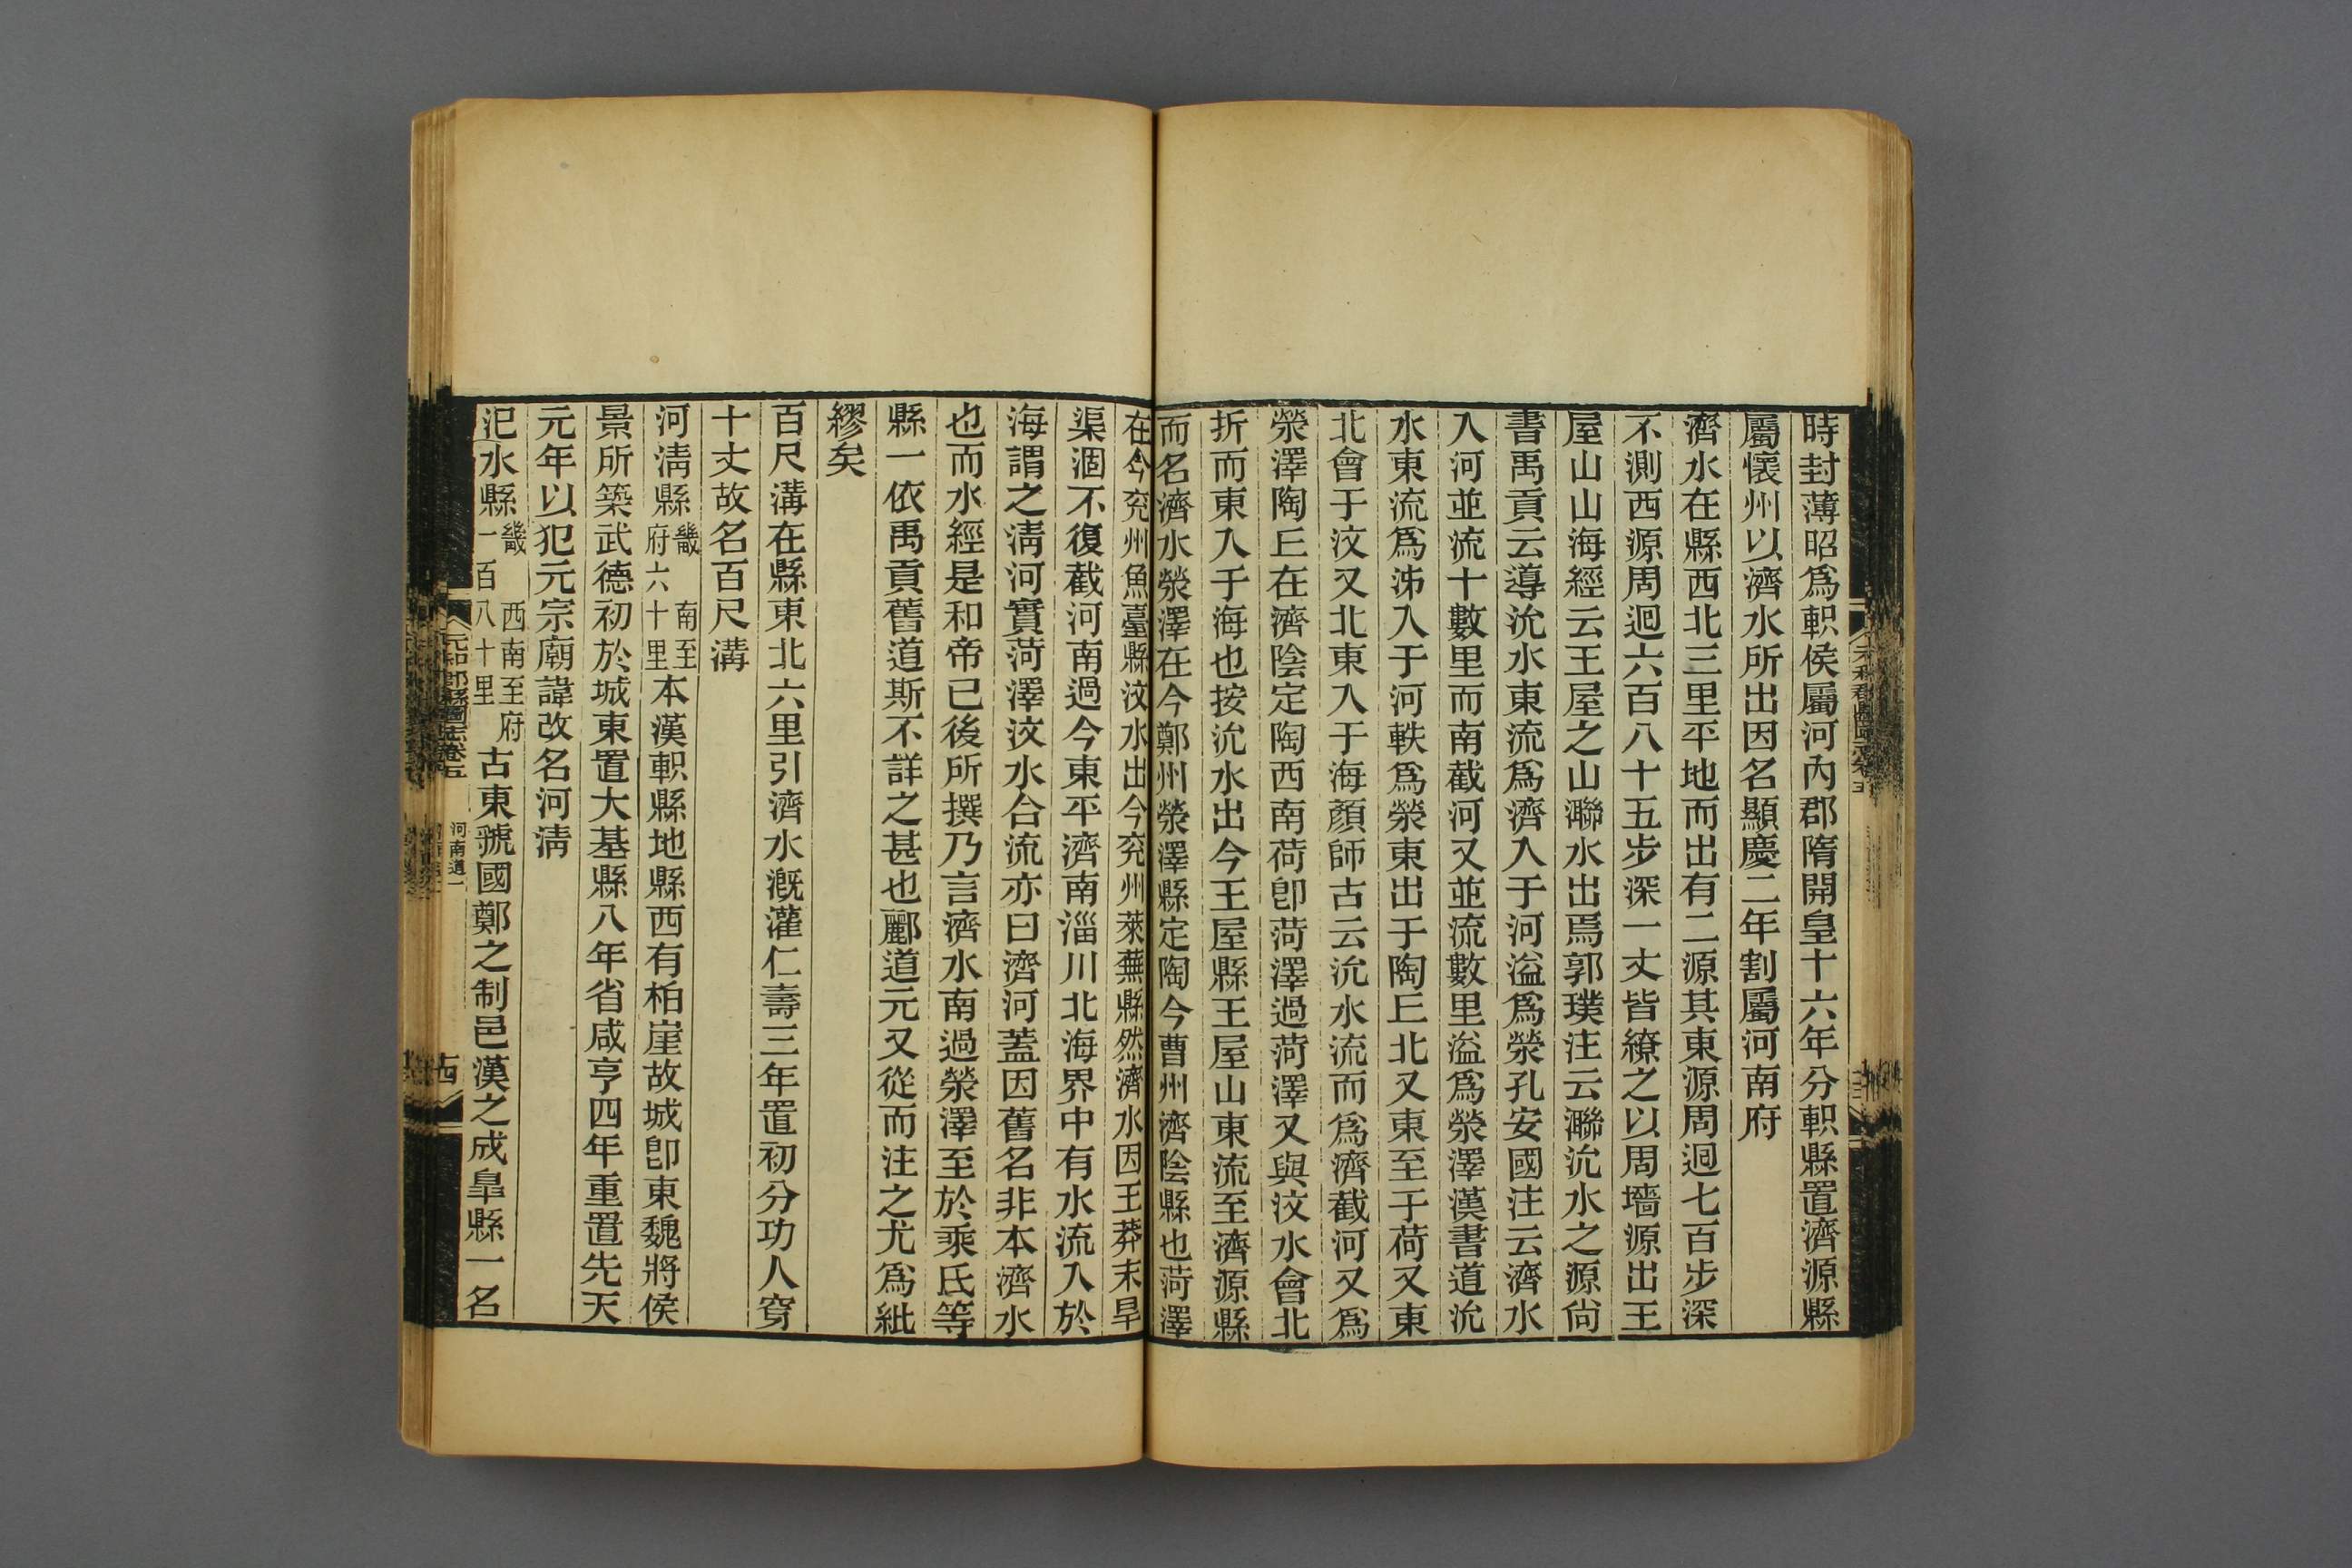 時封薄昭爲軹侯屬河內郡隋開皇十六年分軹縣置濟源縣
屬懷州以濟水所出因名顯慶二年割屬河南府
濟水在縣西北三里平地而出有二源其東源周迴七百步深
不測西源周迴六百八十五步深一丈皆繚之以周墻源出王
屋山山海經云王屋之山𤅊水出焉郭璞注云𤅊沇水之源尙
書禹貢云導沇水東流爲濟入于河溢爲滎孔安國注云濟水
入河並流十數里而南截河又並流數里溢爲滎澤漢書道沇
水東流爲泲入于河軼爲滎東出于陶丘北又東至于荷又東
北會于汶又北東入于海顏師古云沇水流而爲濟截河又爲
滎澤陶丘在濟陰定陶西南荷卽菏澤過菏澤又與汶水會北
折而東入于海也按沇水出今王屋縣王屋山東流至濟源縣
而名濟水滎澤在今鄭州滎澤縣定陶今曹州濟陰縣也菏澤
在今兗州魚臺縣汶水出今兗州萊蕪縣然濟水因王莽末旱
渠涸不復截河南過今東平濟南淄川北海界中有水流入於
海謂之淸河實菏澤汶水合流亦曰濟河蓋因舊名非本濟水
也而水經是和帝已後所撰乃言濟水南過滎澤至於乘氏等
縣一依禹貢舊道斯不詳之甚也酈道元又從而注之尤爲紕
繆矣
百尺溝在縣東北六里引濟水漑灌仁壽三年置初分功人穿
十丈故名百尺溝
河淸縣畿南至府六十里本漢軹縣地縣西有柏崖故城卽東魏將侯
景所築武德初於城東置大基縣八年省咸亨四年重置先天
元年以犯元宗廟諱改名河淸
汜水縣畿西南至府一百八十里古東虢國鄭之制邑漢之成皐縣一名
元和郡縣圖志卷五
河南道一